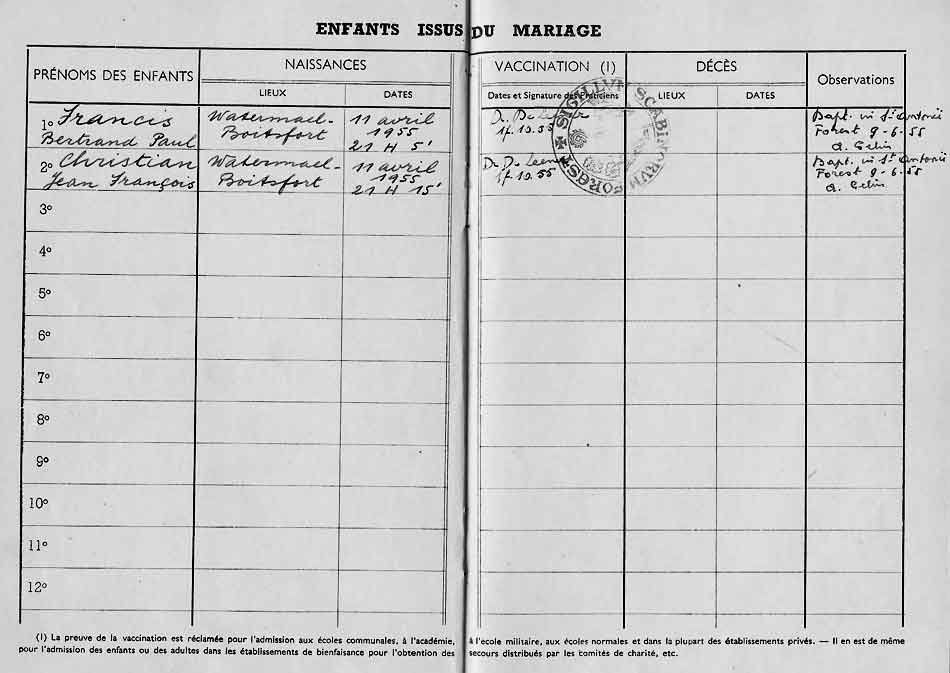 ENFANTS ISSUS DU MARIAGE
PRÉNOMS DES ENFANTS
NAISSANCES
LIEUX
DATES
VACCINATION (I)
Dates et Signature des Praticiens
DÉCÈS
LIEUX
DATES
Observations
1º Francis
Bertrand Paul
Watermael-
Boitsfort
11 avril
1955
21 H 5'
17.10.55
Bapt. in St Antonii
Forest 9-6-55
2º Christian
Jean François
Watermael-
Boitsfort
11 avril
1955
21 H 15'
17.10.55
Bapt. in St Antonii
Forest 9-6-55
SIGILLVM SCABINORVM FOREST
3º
4º
5º
6º
7º
8º
9º
10º
11º
12º
(I) La preuve de la vaccination est réclamée pour l'admission aux écoles communales, à l'académie, à l'ecole militaire, aux écoles normales et dans la plupart des établissements privés. — Il en est de même
pour l'admission des enfants ou des adultes dans les établissements de bienfaisance pour l'obtention des secours distribués par les comités de charité, etc.